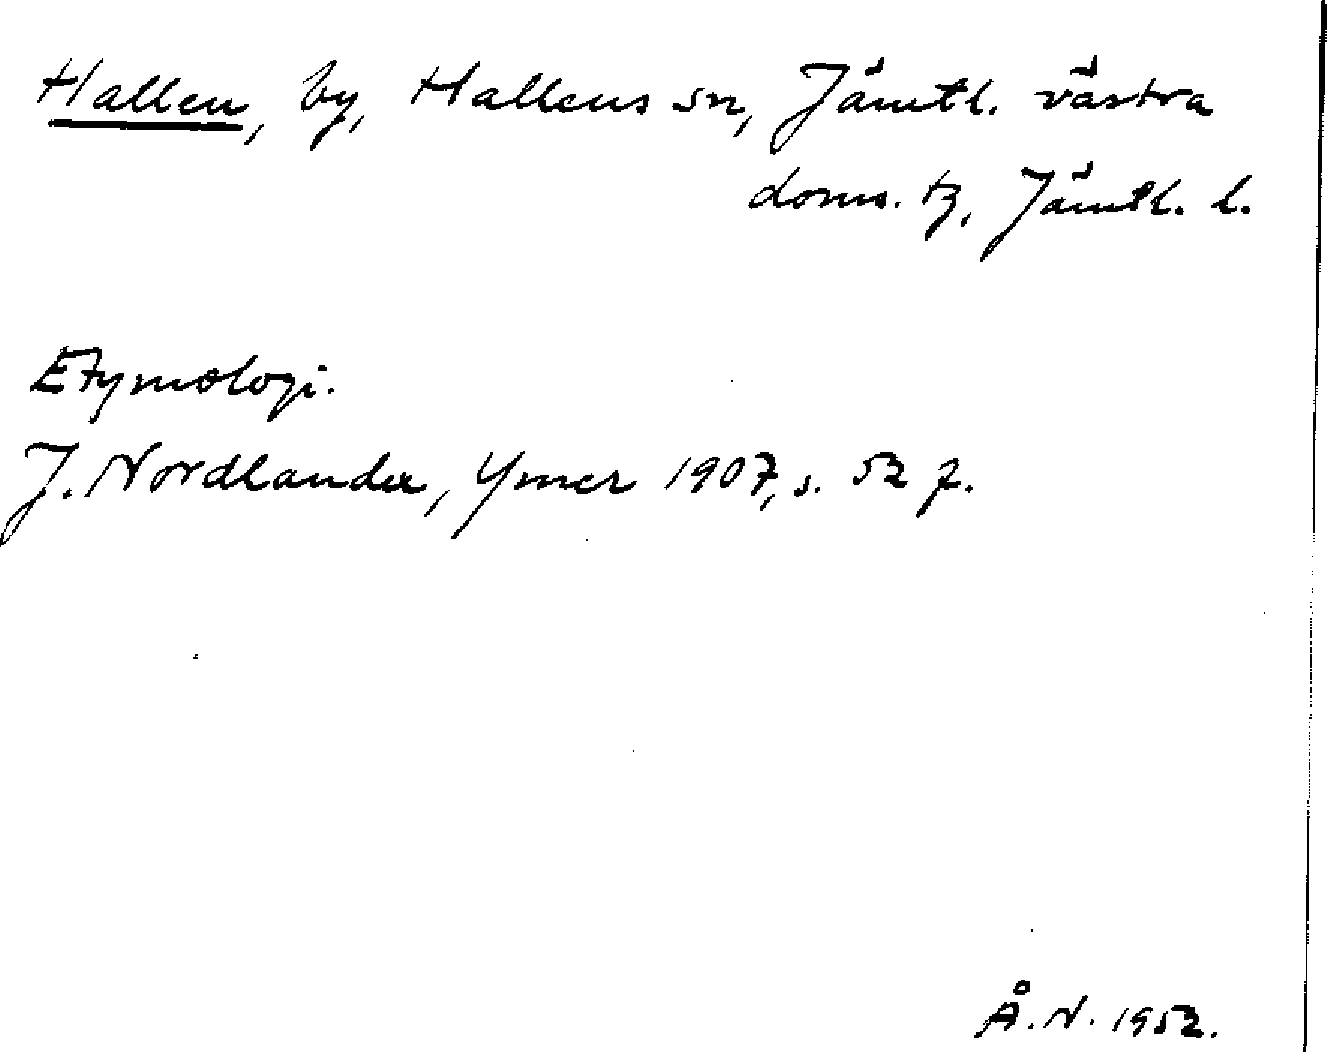 Hallen, by, Hallens sn, Jämtl. västra
doms. tg, Jämtl. l.
Etymologi.
J. Nordlander, Ymer 1907, s. 52 f.
Å. N. 1952.